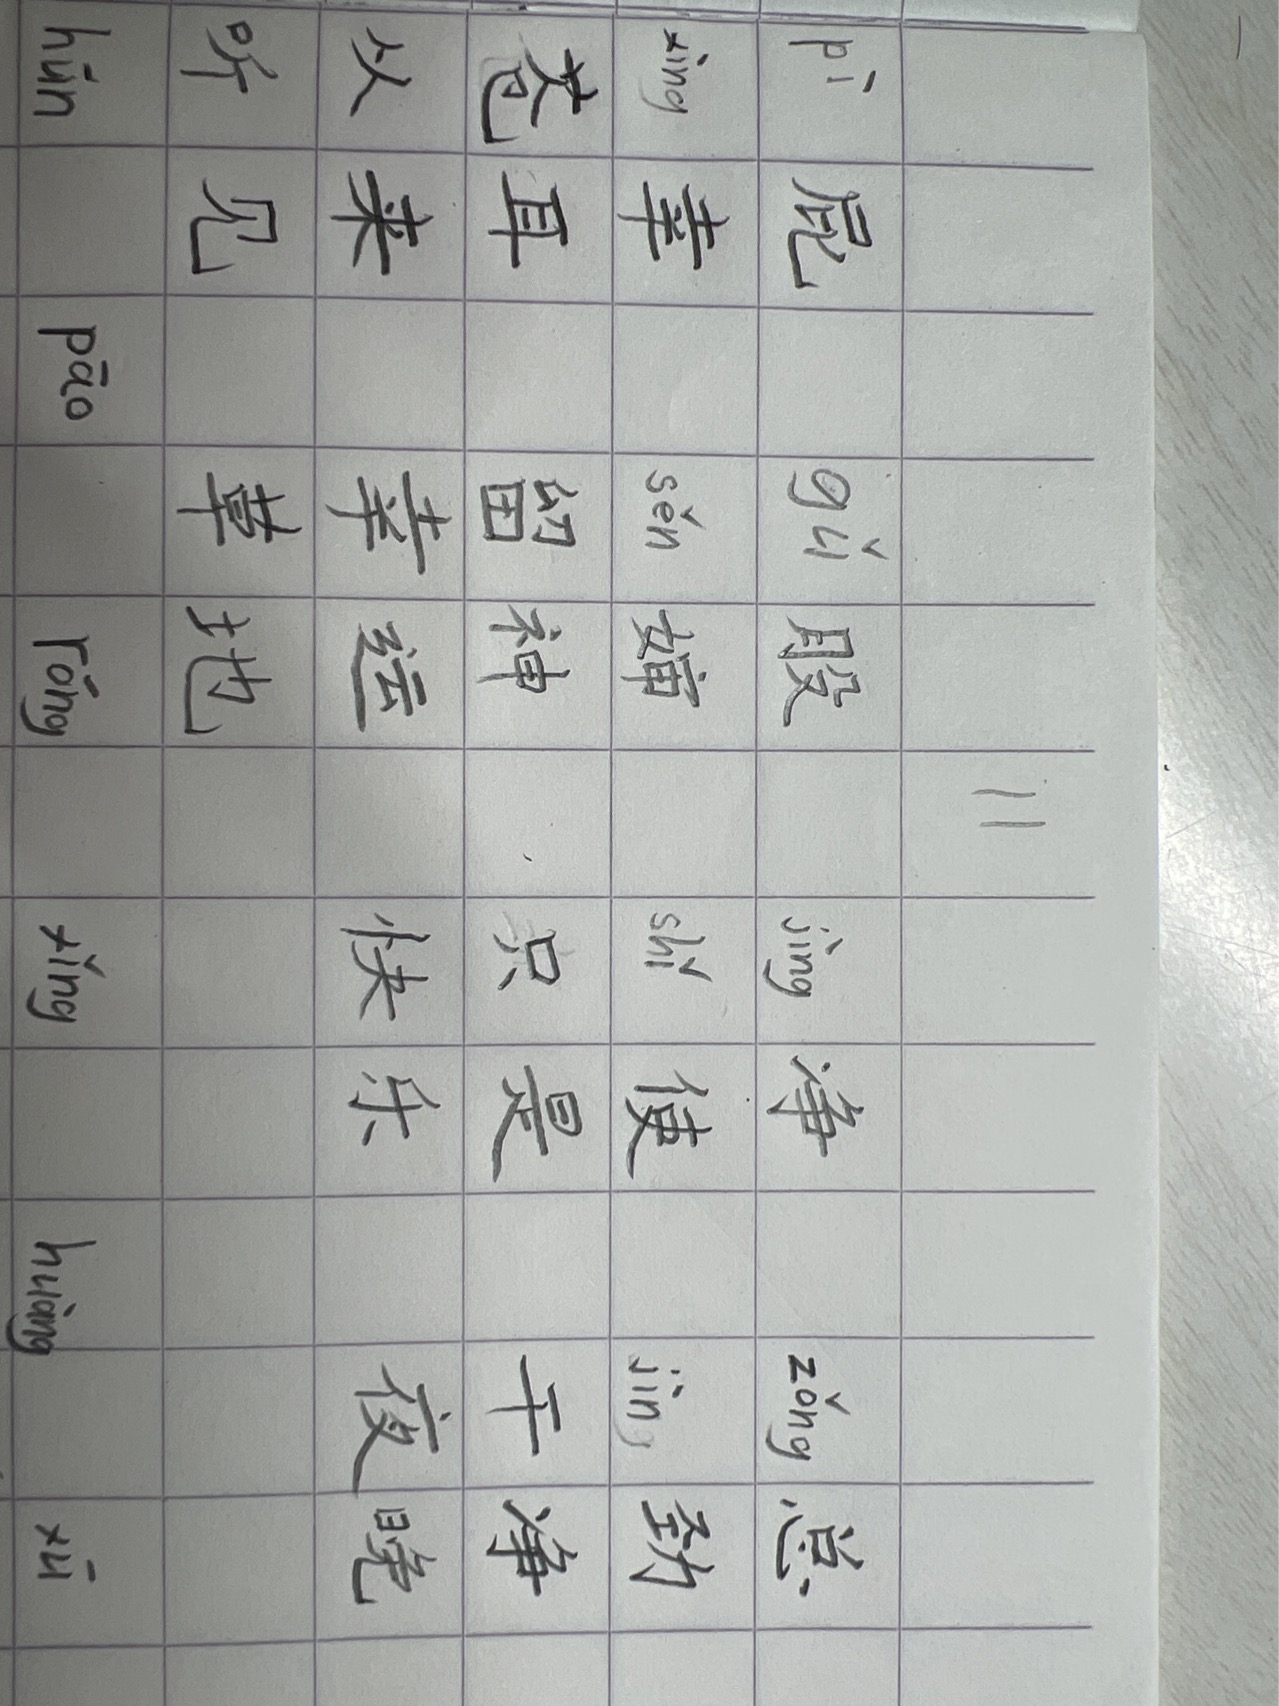 二
pì 屁 gǔ 股 jìng 净 zǒng 总
xìng 幸 sěn 婶 shǐ 使 jìn 劲
耳 留神 只是 干净
从来 幸运 快乐 夜晚
听见 草地
hún pāo róng xǐng huàng xū